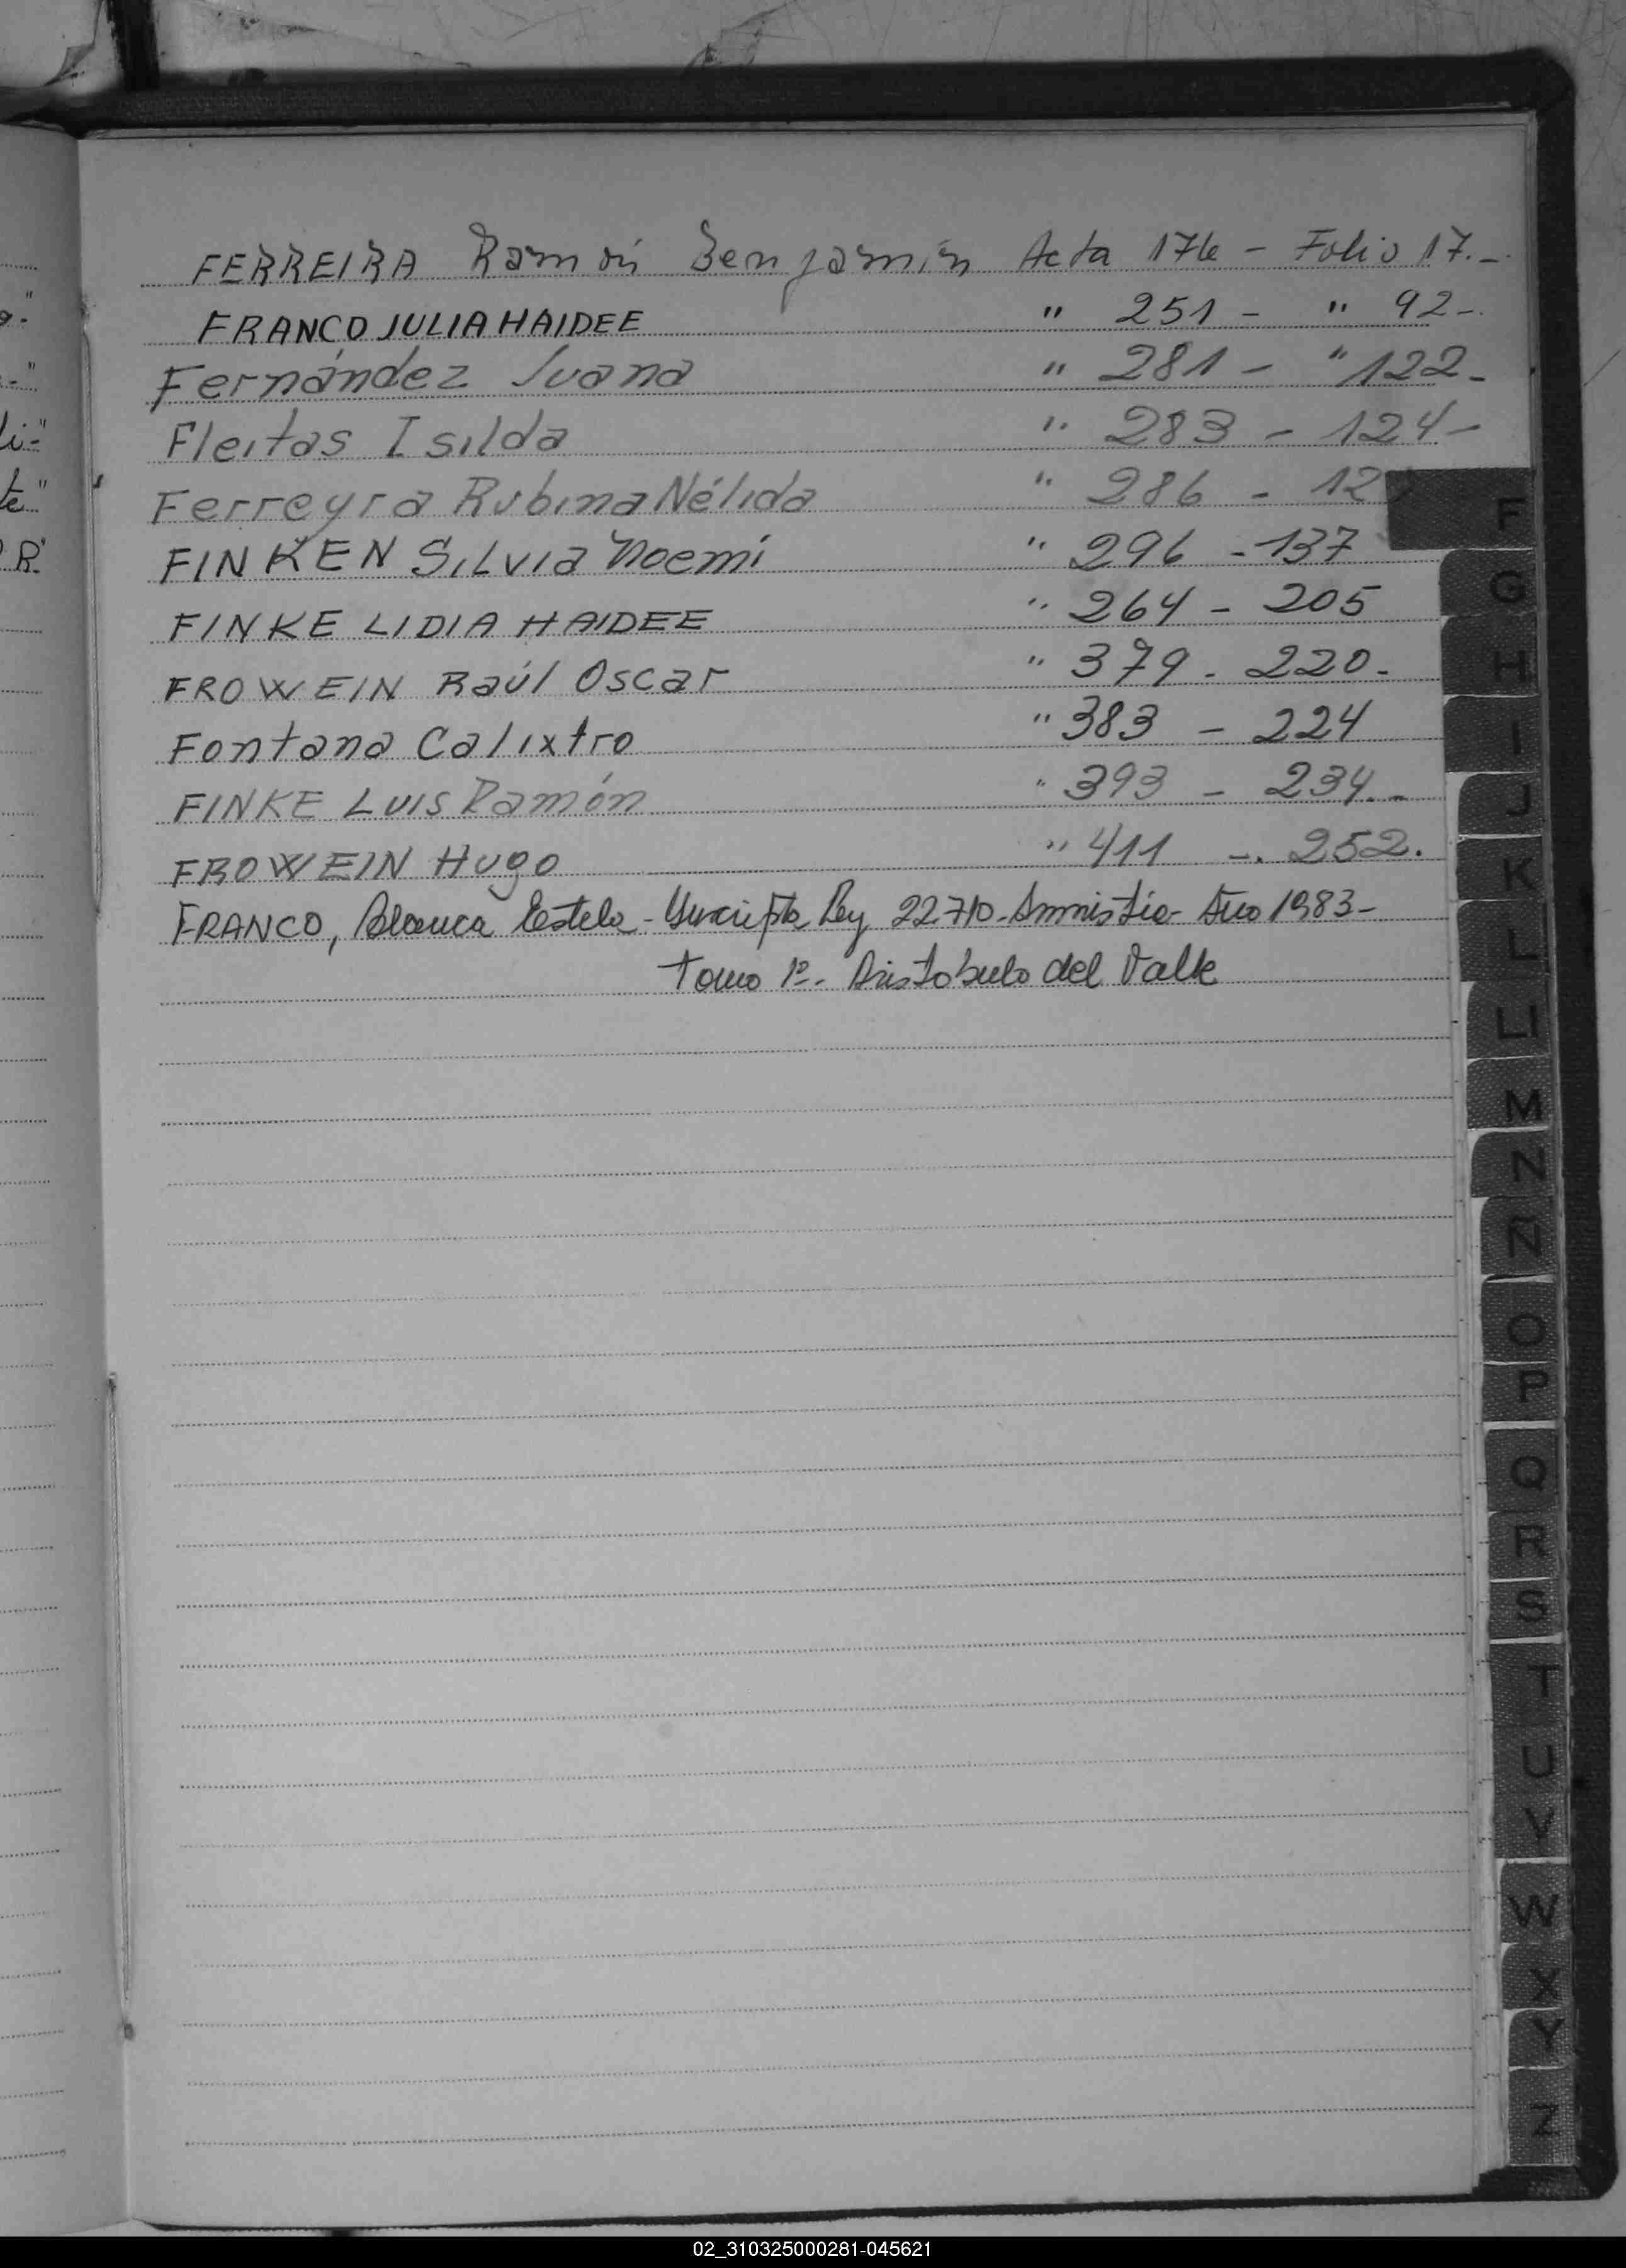 FERREIRA Ramón Benjamín Acta 176 - Folio 17.-
FRANCO JULIA HAIDEE " 251 - " 92-
Fernández Juana " 281 - " 122-
Fleitas Isilda " 283 - 124-
Ferreyra Rubina Nélida " 286 - 12
FINKEN SILVIA Noemi " 296 - 137
FINKE LIDIA HAIDEE " 264 - 205
FROWEIN Raúl Oscar " 379 - 220-
Fontana Calixtro " 383 - 224
FINKE LUIS Ramón " 393 - 234.-
FROWEIN Hugo " 411 -. 252.
FRANCO, Blanca Estela - Inscripta Ley 22.710- Amnistia- Año 1983-
Tomo 1º- Aristobulo del Valle
F
G
H
I
J
K
L
LI
M
N
Ñ
O
P
Q
R
S
T
U
V
W
X
Y
Z
02_310325000281-045621